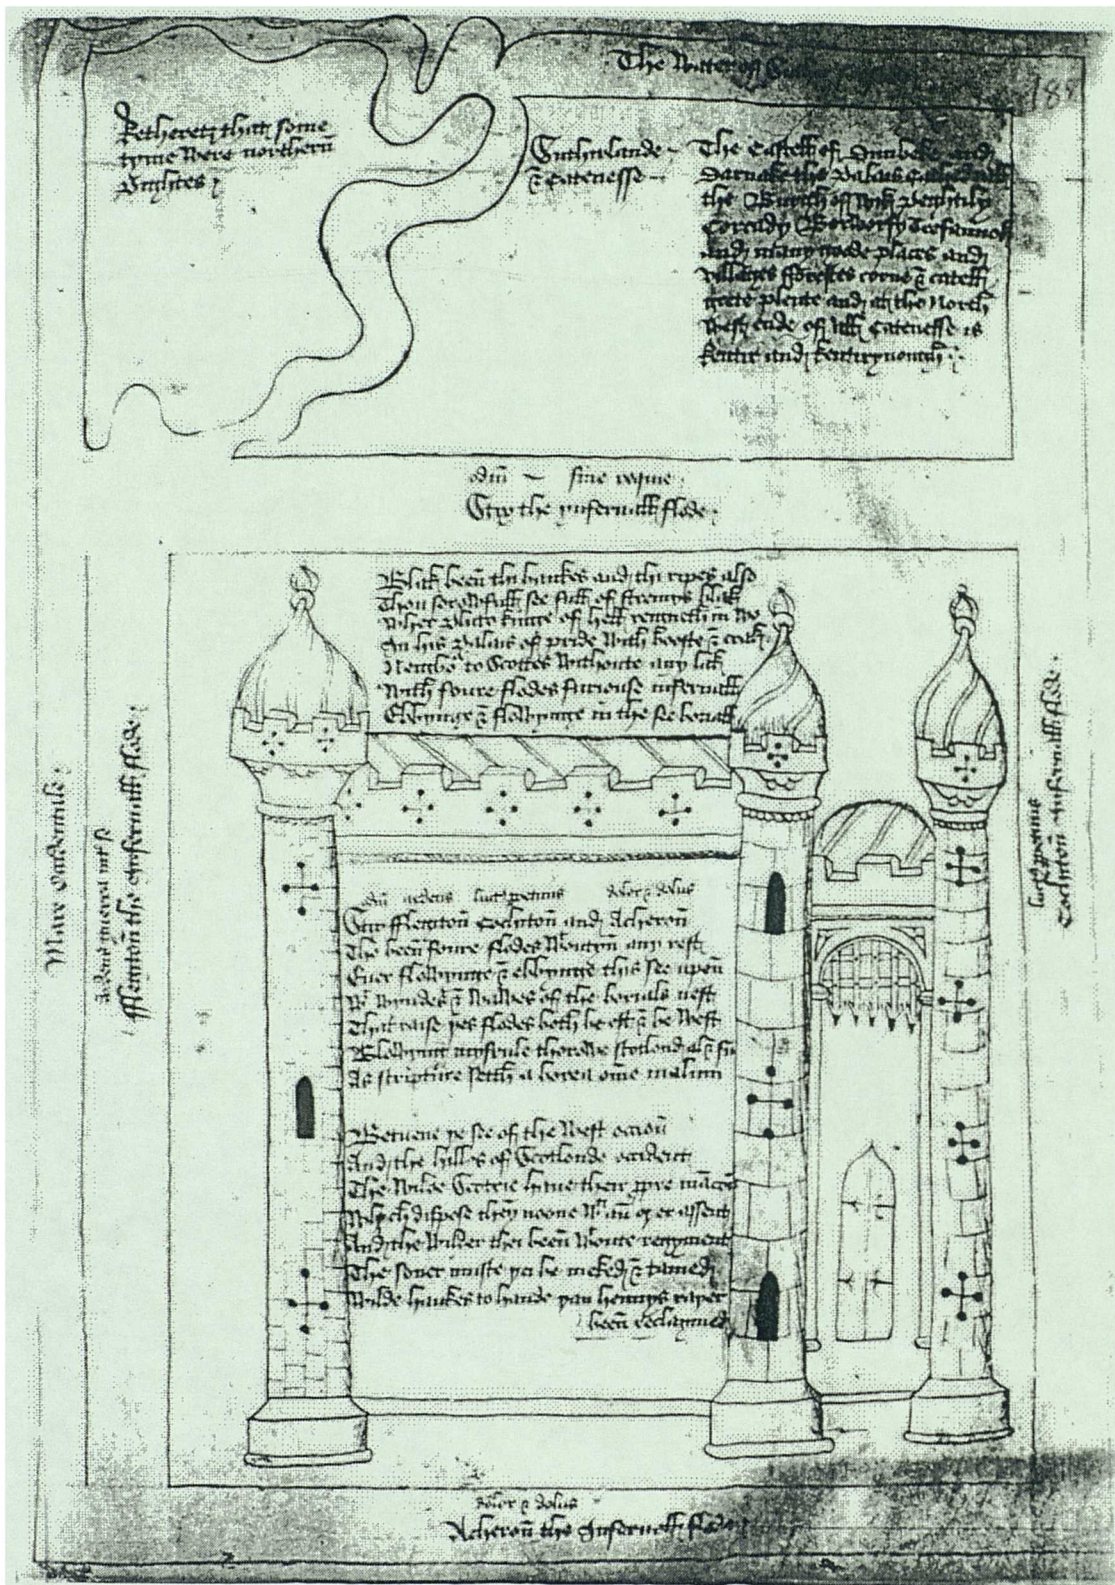 The Water of
188
Ketheretz that some
tyme were northern
Pightes
Sutherlande
& Catenesse
The Castell of Dunbek and
Darnake the Palais Cathedrall
the Burgh of Wik
and many goode places and
villages fforestes corne & catell
grete plente and at the North
West ende of all Catenesse is
Kentir and
odiu͞ sine requie
Styx the ynfernall flode
Blak been thi bankes and thi ripes also
Thou sorowfull see full of stremys blak
Wher Pluto kinge of hell reigneth in wo
In his Palais of pride with booste & crak
Neighbor to Scottes withoute any lak
With foure flodes furiouse infernall
Ebbynge & flowynge in the see boriall
odiu͞ ardens luctus perpetuus dolor & dolus
Styx fflegiton Cochiton and Acheron
The been foure flodes woutyn any rest
Ever flowynge & ebbynge this see upon
Wt wyndes & wawes of the borials nest
That raise yes flodes both be est & be west
Blowynge myscrule thorowe Scotlond als fu
As scripture seith a borea om͞e malum
Betuene ye see of the west occian
And the hilles of Scotlonde occident
The wilde Scotrie have their propre
Which dispose they noone wt an oyer assent
And the wilder thei been wtoute regyment
The soner muste yei be meked & tamed
Wilde haukes to hande yan hennys rayer
been reclaymed
Mare Occidentale
ardens
fflegiton the Infernall flode
luctus perpetuus
Cochiton Infernall flode
dolor & dolus
Acheron the Infernall flode